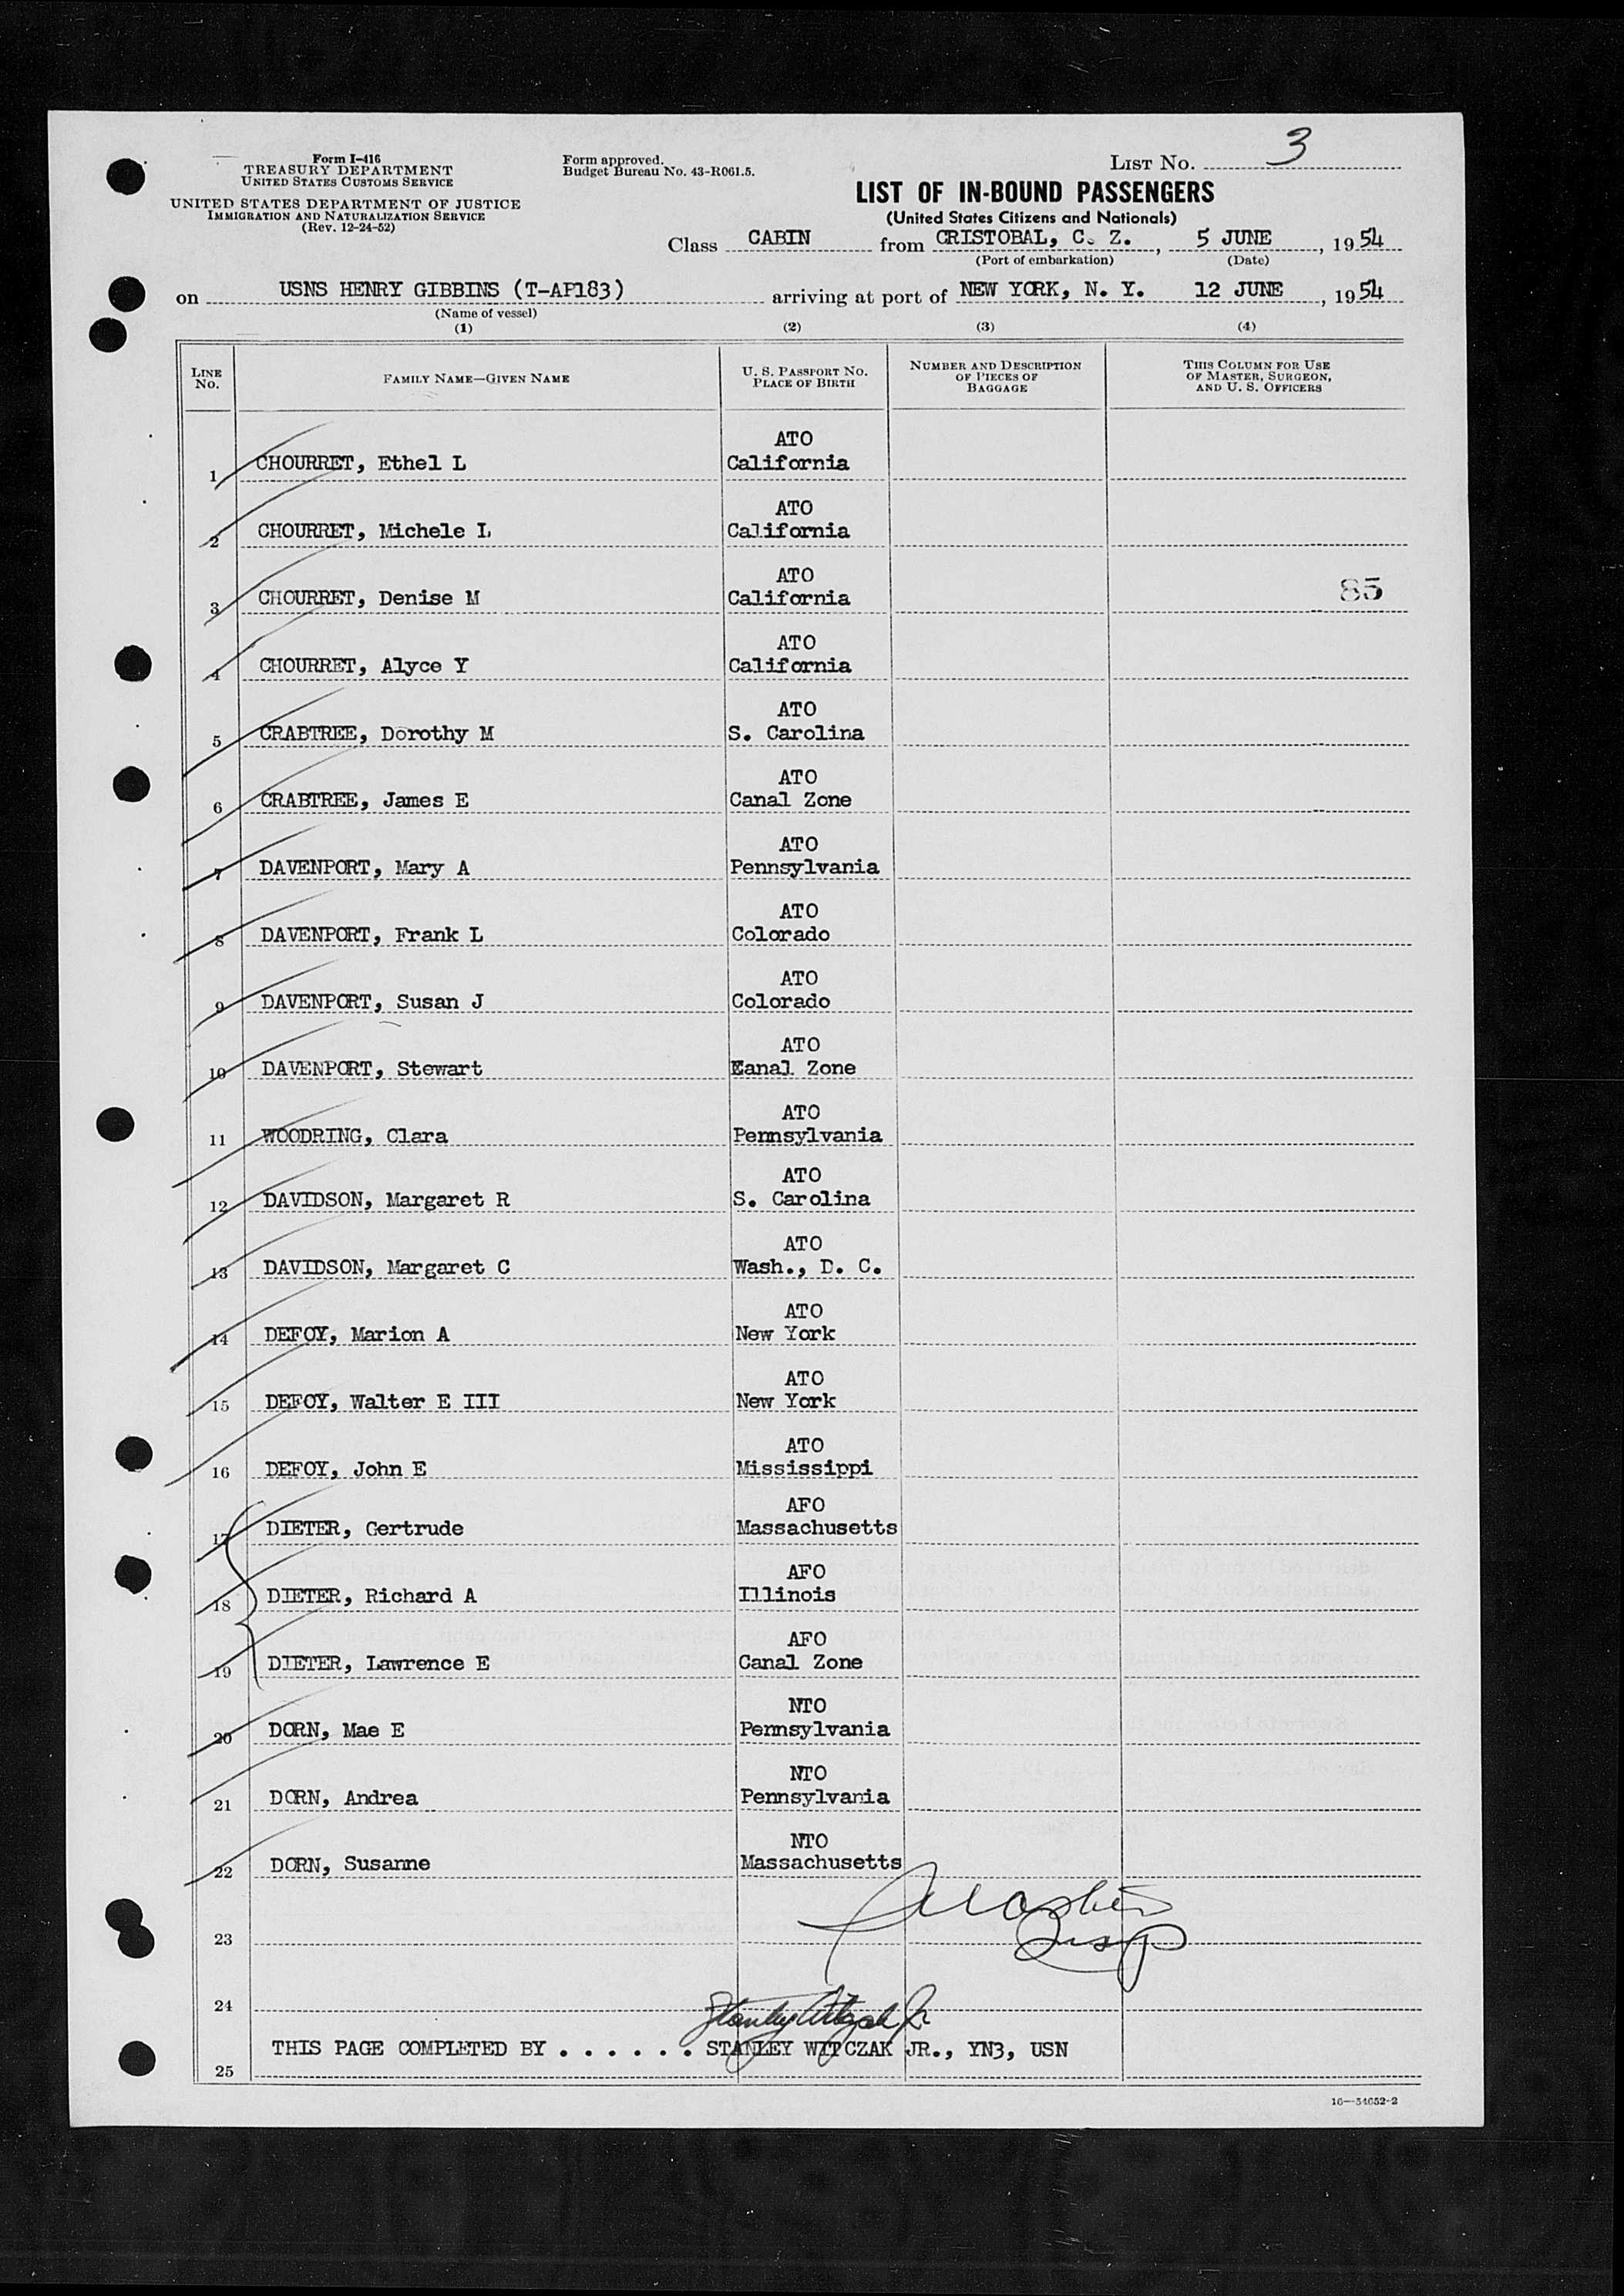 Form I-416
TREASURY DEPARTMENT
UNITED STATES CUSTOMS SERVICE
UNITED STATES DEPARTMENT OF JUSTICE
IMMIGRATION AND NATURALIZATION SERVICE
(Rev. 12-24-52)
Form approved.
Budget Bureau No. 43-R061.5.
LIST No. 3
LIST OF IN-BOUND PASSENGERS
(United States Citizens and Nationals)
Class CABIN from CRISTOBAL, C. Z., 5 JUNE, 1954
(Port of embarkation) (Date)
on USNS HENRY GIBBINS (T-AP183) arriving at port of NEW YORK, N. Y. 12 JUNE, 1954
(Name of vessel)
(1) (2) (3) (4)
LINE No. FAMILY NAME—GIVEN NAME U. S. PASSPORT No. PLACE OF BIRTH NUMBER AND DESCRIPTION OF PIECES OF BAGGAGE THIS COLUMN FOR USE OF MASTER, SURGEON, AND U. S. OFFICERS
ATO
1 CHOURRET, Ethel L California
ATO
2 CHOURRET, Michele L California
ATO
3 CHOURRET, Denise M California 85
ATO
4 CHOURRET, Alyce Y California
ATO
5 CRABTREE, Dorothy M S. Carolina
ATO
6 CRABTREE, James E Canal Zone
ATO
7 DAVENPORT, Mary A Pennsylvania
ATO
8 DAVENPORT, Frank L Colorado
ATO
9 DAVENPORT, Susan J Colorado
ATO
10 DAVENPORT, Stewart Canal Zone
ATO
11 WOODRING, Clara Pennsylvania
ATO
12 DAVIDSON, Margaret R S. Carolina
ATO
13 DAVIDSON, Margaret C Wash., D. C.
ATO
14 DEFOY, Marion A New York
ATO
15 DEFOY, Walter E III New York
ATO
16 DEFOY, John E Mississippi
AFO
17 DIETER, Gertrude Massachusetts
AFO
18 DIETER, Richard A Illinois
AFO
19 DIETER, Lawrence E Canal Zone
NTO
20 DORN, Mae E Pennsylvania
NTO
21 DORN, Andrea Pennsylvania
NTO
22 DORN, Susanne Massachusetts
23
24
Stanley Witczak Jr
THIS PAGE COMPLETED BY . . . . . . STANLEY WITCZAK JR., YN3, USN
25
16—54652-2